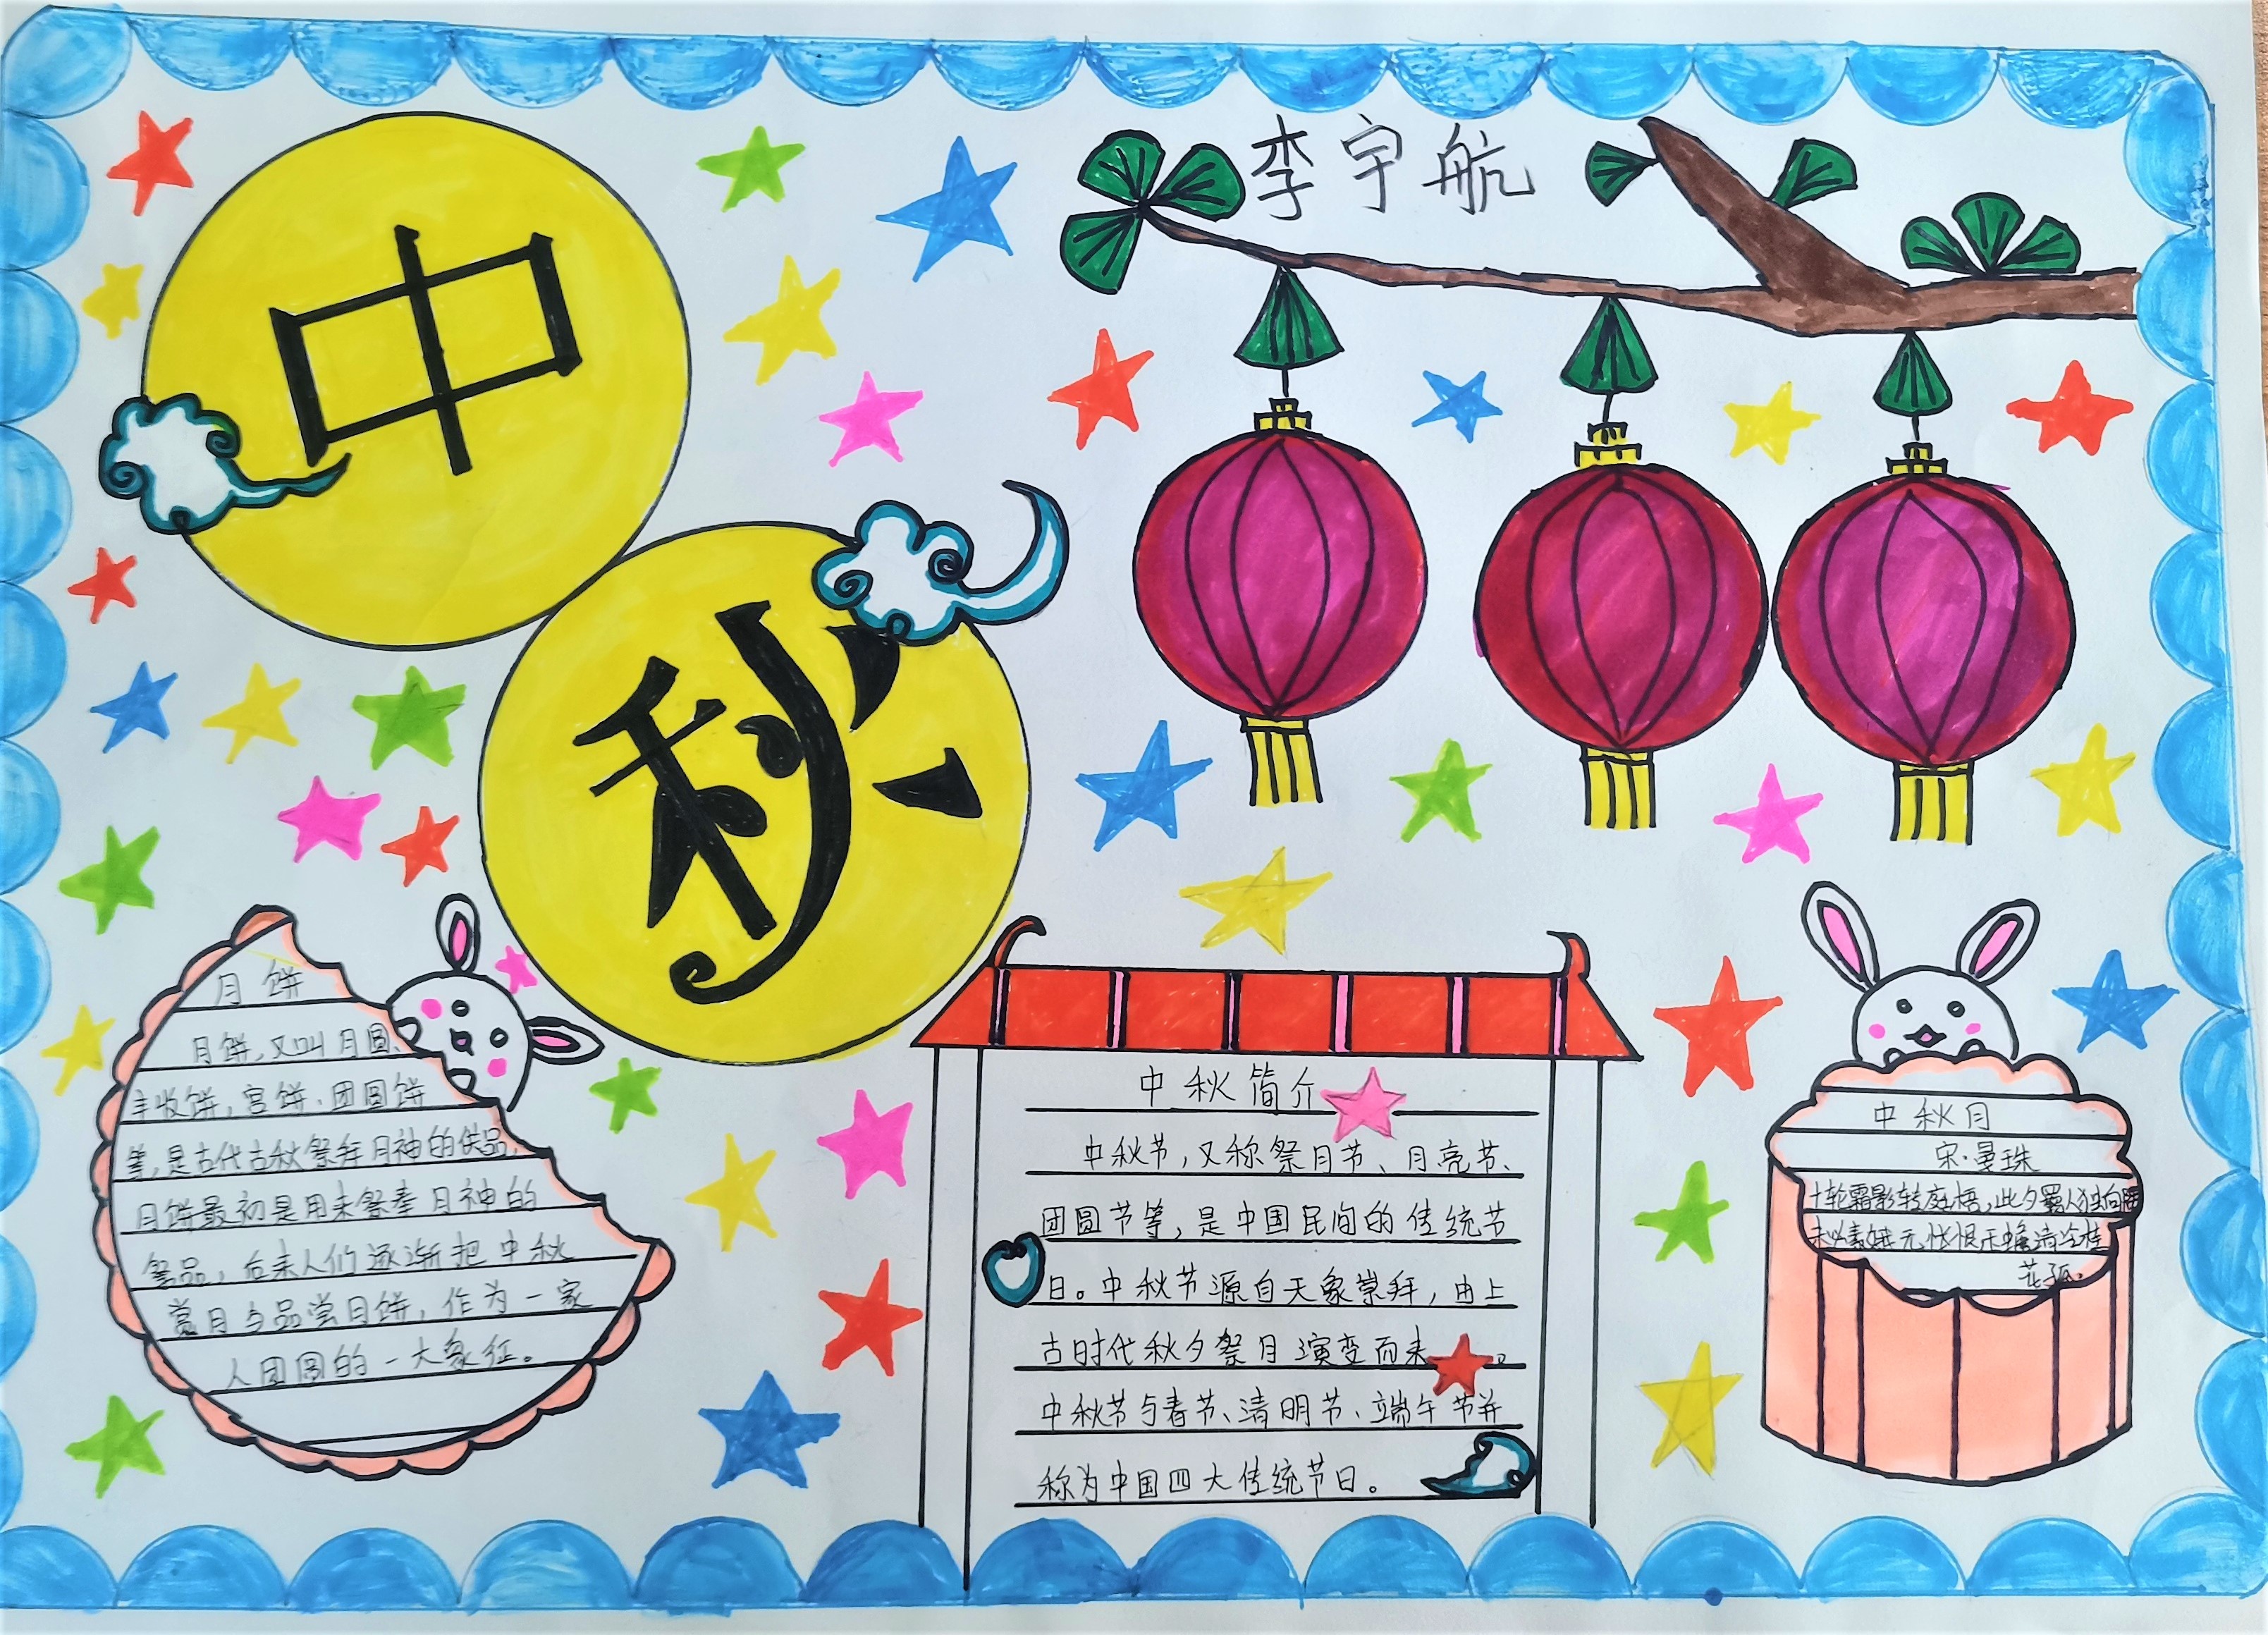 中
秋
李宇航
月饼
月饼,又叫月团、
丰收饼,宫饼、团圆饼
等,是古代古秋祭拜月神的供品,
月饼最初是用来祭奉月神的
祭品,后来人们逐渐把中秋
赏月与品尝月饼,作为一家
人团圆的一大象征。
中秋简介
中秋节,又称祭月节、月亮节、
团圆节等,是中国民间的传统节
日。中秋节源自天象崇拜,由上
古时代秋夕祭月演变而来。
中秋节与春节、清明节、端午节并
称为中国四大传统节日。
中秋月
宋·晏殊
十轮霜影转庭梧,此夕羁人独向隅
未必素娥无怅恨玉蟾清冷桂
花孤.